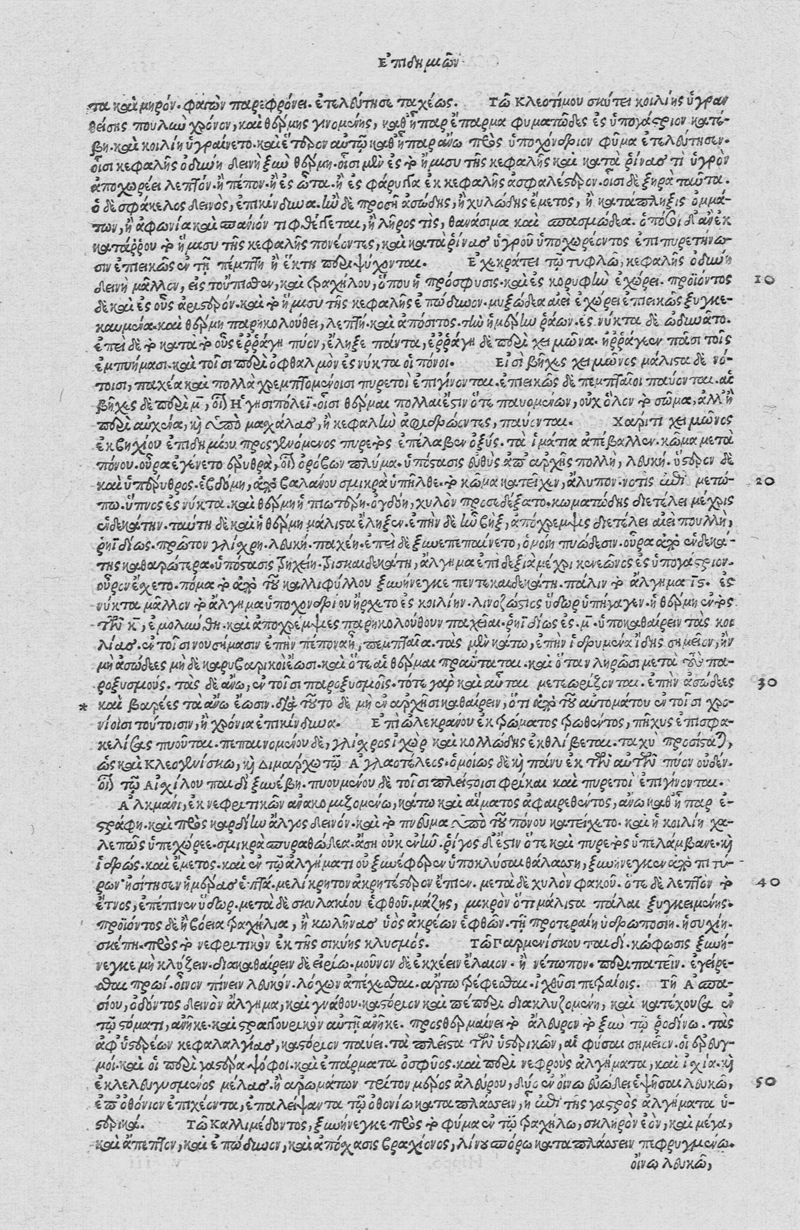 Ἐπιδημιῶν
τα καὶ μηρόν. φαγὼν παρεφρόνει. ἐτελεύτησε ταχέως. Τῶ Κλεοτίμου σκύτει κοιλίης ὑγραν
θείσης πουλὺν χρόνον, καὶ θέρμης γινομένης, καθ' ἧπαρ ἔπαρμα φυματῶδες ἐς ὑπογάστριον κατέ-
βη. καὶ κοιλίη ὑγραίνετο. καὶ ἕτερον αὐτῷ καθ' ἧπαρ ἄνω πρὸς ὑποχόνδριον φῦμα ἐτελεύτησεν.
οἷσι κεφαλῆς ὀδύνη δεινὴ ξὺν θέρμῃ. οἷσι μὲν ἐς τὸ ἥμισυ τῆς κεφαλῆς καὶ κατὰ ῥῖνας τὶ ὑγρὸν
ἀποχωρέει λεπτὸν. ἢ πέπον. ἢ ἐς ὦτα. ἢ ἐς φάρυγγα ἐκ κεφαλῆς ἀσφαλέστερον. οἷσι δὲ ξηρὰ ταῦτα.
ὁ δὲ σφάκελος δεινὸς, ἐπικίνδυνα. ἢν δὲ προσῇ ἀσώδης, ἢ χολώδης ἔμετος, ἢ κατάπληξις ὀμμά-
των, ἢ ἀφωνία καὶ σπανιόν τι φθέγγεται, ἢ λῆρος τὶς, θανάσιμα καὶ σπασμώδεα. ὁπόσοι δ' ἂν ἐκ
κατάρρου τὸ ἥμισυ τῆς κεφαλῆς πονέοντες, καὶ κατὰ ῥῖνας ὑγροῦ ὑποχωρέοντος ἐπιπυρετήνω-
σιν ἐπιεικῶς ἐν τῇ πέμπτῃ ἢ ἕκτῃ περιψύχονται. Ἐχεκράτει τῷ τυφλῷ, κεφαλῆς ὀδύνη
δεινὴ μᾶλλον, εἰς τοὔπισθεν, καὶ τραχήλου, ὅπου ἡ πρόσφυσις. καὶ ἐς κορυφὴν ἐχώρει. προϊόντος 10
δὲ καὶ ἐς οὖς ἀριστερόν. καὶ τὸ ἥμισυ τῆς κεφαλῆς ἐπώδυνον. μυξώδεα αἰεὶ ἐχώρει ἐπιεικῶς ξυγκε-
καυμένα. καὶ θέρμη παρηκολούθει, λεπτὴ. καὶ ἀπόσιτος. τὴν ἡμέρην ῥᾴων. ἐς νύκτα δὲ ὠδυνᾶτο.
ἐπεὶ δὲ τὸ κατὰ τὸ οὖς ἐρράγη πύον, ἔληξε πάντα, ἐρράγη δὲ περὶ χειμῶνα. ἠρράγεεν πᾶσι τοῖς
ἐμπυήμασι. καὶ τοῖσι περὶ ὀφθαλμὸν ἐς νύκτα οἱ πόνοι. Εἰσὶ βῆχες χειμῶνος μάλιστα δὲ νό-
τοισι, παχέα καὶ πολλὰ χρεμπτομένοισι πυρετοὶ ἐπιγίνονται. ἐπιεικῶς δὲ πεμπταῖοι παύονται. αἱ
βῆχες δὲ περὶ μ̄, οἷον Ἡγησιπόλει. οἷσι θέρμαι πολλαὶ ἔστιν ὅτε παυομένων, οὐχ ὅλον τὸ σῶμα, ἀλλ' ἢ
περὶ αὐχένα, ἢ ὑπὸ μασχάλας, ἢ κεφαλὴν ἀφιδρῶντες, παύονται. Χαρίτι χειμῶνος
ἐκ βηχίου ἐπιδημίου προσγενόμενος πυρετὸς ἐπέλαβεν ὀξύς. τὰ ἱμάτια ἀπέβαλλεν. κῶμα μετὰ
πόνου. οὖρα ἐγένετο ἐρυθρὰ, οἷον ὀρόβων πλύμα. ὑπόστασις εὐθὺς ἀπ' ἀρχῆς πολλὴ, λευκή. ὕστερον δὲ
καὶ ὑπέρυθρος. ἑβδόμῃ, ἀπὸ βαλάνου σμικρὰ ὑπῆλθε. τὸ κῶμα κατεῖχεν, ἄλυπον. νοτὶς ἐπὶ μετώ- 20
πῳ. ὕπνος ἐς νύκτα. καὶ θέρμη ἠπιωτέρη. ὀγδόη, χυλὸν προσεδέξατο. κωματώδης διετέλει μέχρις
ἑνδεκάτην. ταύτῃ δὲ καὶ ἡ θέρμη μάλιστα ἔληξεν. ἐπὴν δὲ ἦν βήξ, ἀπόχρεμψις διετέλει αἰεὶ πουλλὴ,
ῥηϊδίως. πρῶτον γλίσχρη. λευκή. παχέη. ἐπεὶ δὲ ξυνεπεπαίνετο, ὁμοίη πυώδεσιν. οὖρα ἀπὸ ἑνδεκά-
της καθαρώτερα. ὑπόστασις τρηχεῖη. τρισκαιδεκάτῃ, ἄλγημα ἐπὶ δεξιὰ μέχρι κενεῶνος ἐς ὑπογάστριον.
οὖρον ἔσχετο. πόμα τὸ ἀπὸ τοῦ καλλιφύλλου ξυνήνεγκε πεντεκαιδεκάτῃ. πάλιν τὸ ἄλγημα ις̄. ἐς
νύκτα μᾶλλον τὸ ἄλγημα ὑποχονδρίου ἤρχετο ἐς κοιλίην. λινοζῶστις ὕδωρ ὑπήγαγεν. ἡ θέρμη ἐντὸς
τῶν κ̄, ἐμολύνθη. καὶ ἀποχρέμψιες παρηκολούθουν παχεῖαι. ῥηϊδίως ἐς. μ̄. ὑποκαθαίρειν τὰς κοι
λίας ἐν τοῖσι νουσήμασιν ἐπὴν πέπονα ᾖ, πεμπταῖα. τὰς μὲν κάτω, ἐπὴν ἱδρυμένα ἴδῃς σημεῖον, ἢν
μὴ ἀσώδεες μηδὲ καρηβαρικοὶ ἔωσι. καὶ ὅτε αἱ θέρμαι πραΰταται. καὶ ὅταν λήρωσι μετὰ τοὺς πα-
ροξυσμούς. τὰς δὲ ἄνω, ἐν τοῖσι παροξυσμοῖς. τότε γὰρ καὶ αὗται μετεωρίζονται. ἐπὴν ἀσώδεες 30
* καὶ βαρέες τὰ ἄνω ἔωσιν. διὰ τοῦτο δὲ μὴ ἐν ἀρχῇσι καθαίρειν, ὅτι ἀπὸ τοῦ αὐτομάτου ἐν τοῖσι χρο-
νίοισι τούτοισιν, ἢ χρόνια ἐπικίνδυνα. Ἐπὶ ὠλεκράνου ἐκ φύματος τρωθέντος, πῆχυς ἐπισφα-
κελίσας πυοῦται. πεπαινομένου δὲ, γλίσχρος ἰχὼρ καὶ κολλώδης ἐκθλίβεται. ταχὺ προσίσταται,
ὡς καὶ Κλεογενίσκῳ, καὶ Δημάρχῳ τῷ Ἀγλαοτέλεος. ὁμοίως δὲ καὶ πάνυ ἐκ τῶν αὐτῶν πύον οὐδὲν.
οἷον τῷ Αἰσχίλου παιδὶ ξυνέβη. πυουμένου δὲ τοῖσι πλείστοισι φρίκαι καὶ πυρετοὶ ἐπιγίνονται.
Ἀλκμάνι, ἐκ νεφριτικῶν ἀνακομιζομένῳ, κάτω καὶ αἵματος ἀφαιρεθέντος, ἄνω καθ' ἧπαρ ἐ-
στράφη. καὶ πρὸς καρδίην ἄλγος δεινὸν. καὶ τὸ πνεῦμα ὑπὸ τοῦ πόνου κατείχετο. καὶ ἡ κοιλίη χα-
λεπῶς ὑπεχώρεε. σμικρὰ σπυραθώδεα. ἄση οὐκ ἐνῆν. ῥῖγος δ' ἔστιν ὅτε καὶ πυρετὸς ὑπελάμβανε. καὶ
ἱδρώς. καὶ ἔμετος. καὶ ἐν τῷ ἀλγήματι οὐ ξυνέφερεν ὑποκλύσαι θάλασσῃ, ξυνήνεγκεν ἀπὸ πιτύ-
ρων ἠσίτησεν ἡμέρας ἑπτά. μελίκρητον ἀκρητέστερον ἔπιεν. μετὰ δὲ χυλὸν φακοῦ. ὅτε δὲ λεπτὸν τὸ 40
ἔτνος, ἐπέπινεν ὕδωρ. μετὰ δὲ σκυλακίου ἑφθοῦ. μάζης, μικρὸν ὅτι μάλιστα πάλαι ξυγκειμένης.
προϊόντος δὲ ἢ βόεια τραχήλια, ἢ κωλῆνας ὑὸς ἀκρέων ἑφθῶν. τῇ προτεραίῃ ὑδροποσίη. ἡσυχίη.
σκέπη. πρὸς τὸ νεφριτικὸν ἐκ τῆς σικύης κλυσμός. Τῷ Παρμενίσκου παιδὶ. κώφωσις ξυνή-
νεγκε μὴ κλύζειν. διακαθαίρειν δὲ εἰρίῳ. μοῦνον δὲ ἐκχέειν ἔλαιον. ἢ νέτωπον. περιπατεῖν. ἐγείρε-
σθαι πρωΐ. οἶνον πίνειν λευκόν. λόχων ἀπέχεσθαι. ἄρτῳ τρέφεσθαι. ἰχθῦσι πετραίοις. Τῇ Ἀσπα-
σίου, ὀδόντος δεινὸν ἄλγημα, καὶ γνάθου. καστόριον καὶ πέπερι διακλυζομένη, καὶ κατέχουσα ἐν
τῷ στόματι, ἀνῆκε. καὶ στραγγουρικὸν αὐτῇ ἀνῆκε. προσθερμαίνει τὸ ἄλευρον τὸ ξὺν τῷ ῥοδίνῳ. τὰς
ἀφ' ὑστερέων κεφαλαλγίας, καστόριον παύει. τὰ πλεῖστα τῶν ὑστερικῶν, αἱ φῦσαι σημεῖον. οἱ ἐρευγ-
μοὶ καὶ οἱ περὶ γαστέρα ψόφοι. καὶ ἐπάρματα ὀσφύος. καὶ περὶ νεφροὺς ἀλγήματα, καὶ ἰσχία. καὶ
ἐκλελευγισμένος μέλας. ἢ ἀρωμάτων τρίτον μέρος ἀλεύρου, λύσ ἐν οἴνῳ εὐώδει ἑψῆσαι λευκῷ, 50
ἐπ' ὀθόνιον ἐπιχέοντα, ἐπαλείψαντα τῷ ὀθονίῳ καταπλάσσειν, ἢ ἐπὶ τῆς γαστρὸς ἀλγήματα ὑ-
στερικά. Τῷ Καλλιμέδοντος, ξυνήνεγκε πρὸς τὸ φῦμα ἐν τῷ τραχήλῳ, σκληρὸν ἐὸν, καὶ μέγα,
καὶ ἄπεπτον, καὶ ἐπώδυνον, καὶ ἀπόσχασις βραχίονος, λίνου σπόρῳ καταπλάσσειν πεφρυγμένῳ.
οἴνῳ λευκῷ,